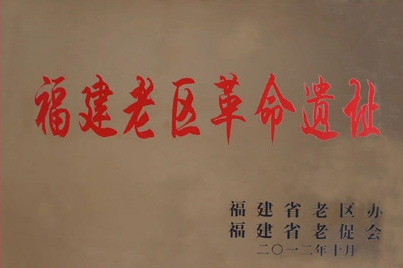 福建老区革命遗址
福建省老区办
福建省老促会
二〇一二年十月